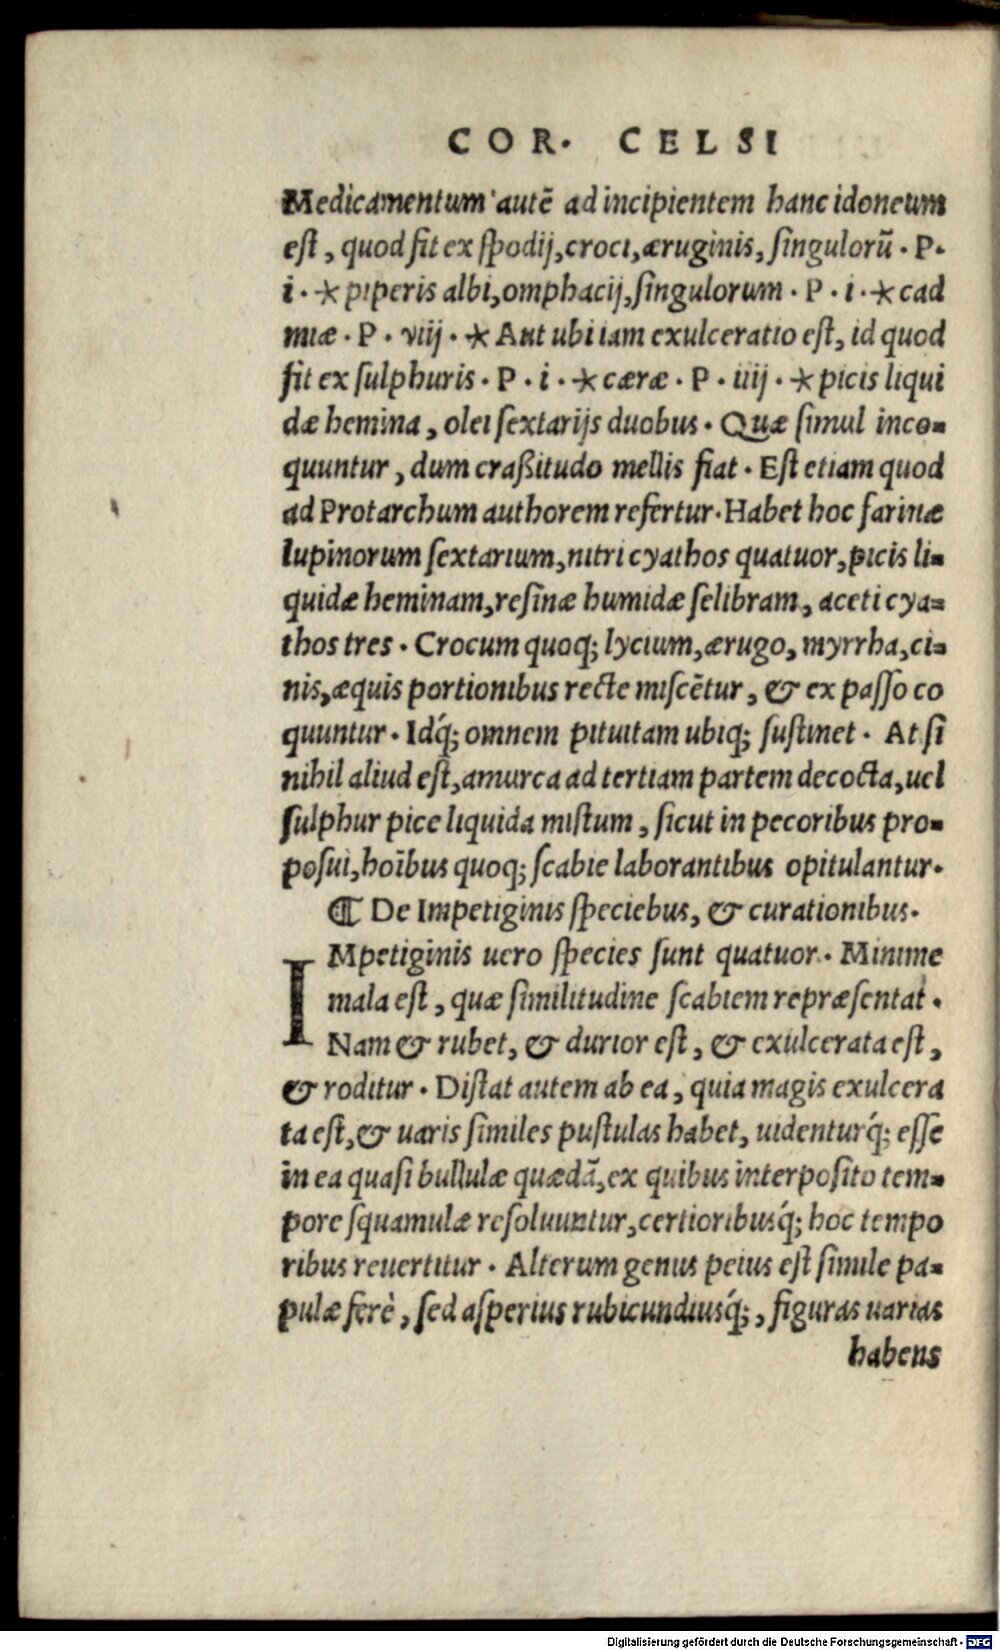 COR. CELSI
Medicamentum autē ad incipientem hanc idoneum
est, quod fit ex spodij, croci, æruginis, singulorū. P.
i. * piperis albi, omphacij, singulorum. P. i. * cad
miæ. P. viij. * Aut ubi iam exulceratio est, id quod
fit ex sulphuris. P. i. * cæræ. P. iiij. * picis liqui
dæ hemina, olei sextarijs duobus. Quæ simul inco-
quuntur, dum craßitudo mellis fiat. Est etiam quod
ad Protarchum authorem refertur. Habet hoc farinæ
lupinorum sextarium, nitri cyathos quatuor, picis li-
quidæ heminam, resinæ humidæ selibram, aceti cya-
thos tres. Crocum quoq; lycium, ærugo, myrrha, ci-
nis, æquis portionibus recte miscētur, & ex passo co
quuntur. Idq́; omnem pituitam ubiq; sustinet. At si
nihil aliud est, amurca ad tertiam partem decocta, uel
sulphur pice liquida mistum, sicut in pecoribus pro-
posui, hoībus quoq; scabie laborantibus opitulantur.
¶ De Impetiginis speciebus, & curationibus.
IMpetiginis uero species sunt quatuor. Minime
mala est, quæ similitudine scabiem repræsentat.
Nam & rubet, & durior est, & exulcerata est,
& roditur. Distat autem ab ea, quia magis exulcera
ta est, & uaris similes pustulas habet, uidenturq́; esse
in ea quasi bullulæ quædā, ex quibus interposito tem-
pore squamulæ resoluuntur, certioribusq́; hoc tempo
ribus reuertitur. Alterum genus peius est simile pa-
pulæ ferè, sed asperius rubicundiusq́;, figuras uarias
habens
Digitalisierung gefördert durch die Deutsche Forschungsgemeinschaft - DFG